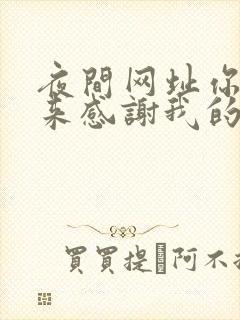 夜間网址你
来感謝我的
買買提 阿不